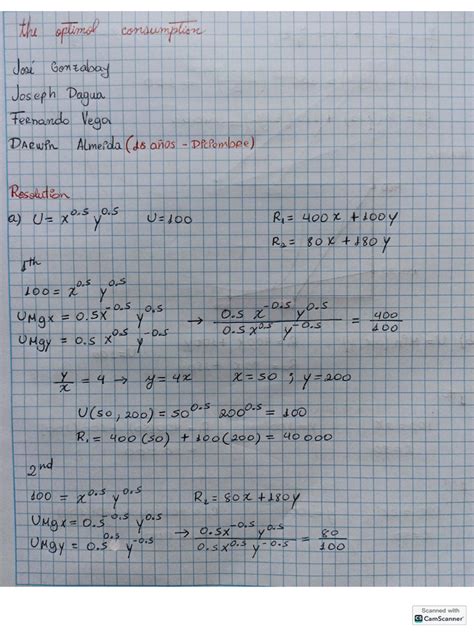 the optimal consumption
José Gonzabay
Joseph Dagua
Fernando Vega
Darwin Almeida (18 años - Diciembre)
Resolution
a) U = x^0.5 y^0.5 U = 100 R₁ = 400x + 100y
R₂ = 80x + 180y
1th
100 = x^0.5 y^0.5
UMgx = 0.5x^-0.5 y^0.5 → 0.5 x^-0.5 y^0.5 / 0.5 x^0.5 y^-0.5 = 400/100
UMgy = 0.5 x^0.5 y^-0.5
y/x = 4 → y = 4x x = 50 ; y = 200
U(50, 200) = 50^0.5 200^0.5 = 100
R₁ = 400 (50) + 100(200) = 40 000
2nd
100 = x^0.5 y^0.5 R₂ = 80x + 180y
UMgx = 0.5^-0.5 y^0.5 → 0.5x^-0.5 y^0.5 / 0.5x^0.5 y^-0.5 = 80/100
UMgy = 0.5^0.5 y^-0.5
Scanned with
CS CamScanner